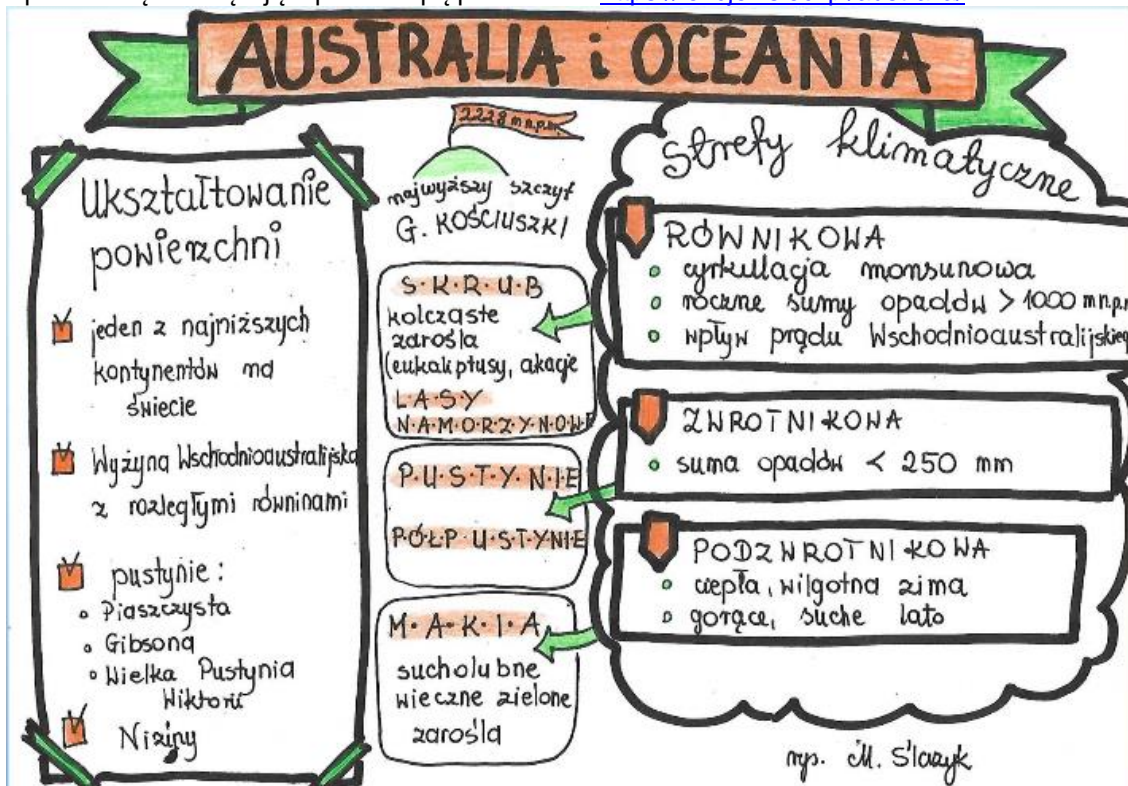 AUSTRALIA i OCEANIA
Ukształtowanie
powierzchni
jeden z najniższych
kontyentów na
świecie
Wyżyna Wschodnioaustralijska
z rozległymi równinami
pustynie:
Piaszczysta
Gibsona
Wielka Pustynia
Wiktorii
Niziny
2228 m n.p.m
najwyższy szczyt
G. KOŚCIUSZKI
S·K·R·U·B
kolczaste
zarośla
(eukaliptusy, akacje
L·A·S·Y
N·A·M·O·R·Z·Y·N·O·W·E
P·U·S·T·Y·N·I·E
P·Ó·Ł·P·U·S·T·Y·N·I·E
M·A·K·I·A
sucholubne
wieczne zielone
zarośla
Strefy klimatyczne
RÓWNIKOWA
cyrkulacja monsunowa
roczne sumy opadów > 1000 m n.p.m
wpływ prądu Wschodnioaustralijskiego
ZWROTNIKOWA
suma opadów < 250 mm
PODZWROTNIKOWA
ciepła, wilgotna zima
gorące, suche lato
rys. M. Ślazyk